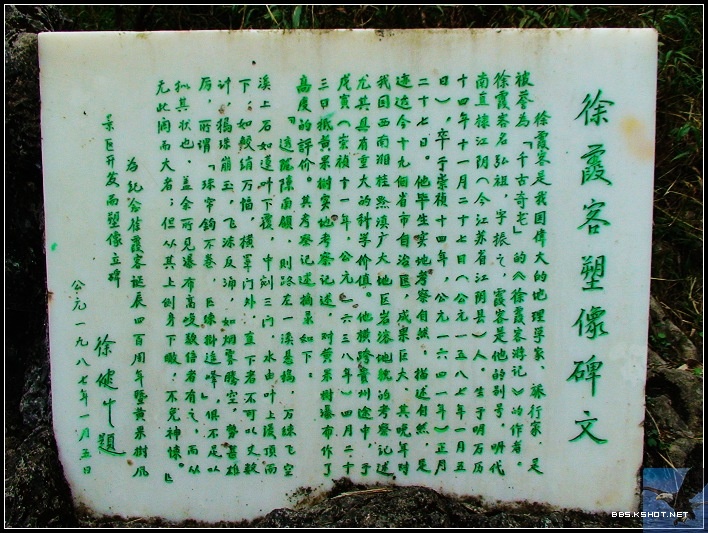 徐霞客塑像碑文
徐霞客是我国偉大的地理学家、旅行家，是
被誉为「千古奇宅」的《徐霞客游记》的作者。
徐霞客名弘祖，字振之，霞客是他的别号，明代
南直隶江阴（今江苏省江阴县）人。生于明万历
十四年十一月二十七日（公元一五八七年一月五
日），卒于崇祯十四年，公元一六四一（年）正月
二十七日。他毕生实地考察自然，描述自然，足
迹迨今十九個省市自治區，成果巨大，其晚年对
我国西南湘桂黔滇广大地区岩溶地貌的考察记述
尤其具有重大的科学价值。他横跨貴州途中，于
戊寅（崇禎十一年，公元一六三八年）四月二十
三日抵黄果樹实地考察记述，对黄果樹瀑布作了
高度的評价。其考察记述摘录如下。
「透陇隙南顧，則路左一溪悬搗，万練飞空
溪上石如莲叶下覆，中剜三门，水由叶上漫頂而
下，如鮫绡万幅，横罩门外，直下者不可以丈数
計，搗珠崩玉，飞沫反涌，如烟雾騰空，勢甚雄
厉，所谓「珠帘钩不卷，匹练掛遥峰」，俱不足以
拟其状也，盖余所见瀑布高峻数倍者有之，而从
无此阔而大者；但从其上侧身下瞰，不免神悚。」
为紀念徐霞客诞辰四百周年暨黄果樹风
景区开发而塑像立碑
徐健 題
公元一九八七年一月五日
BBS.KSHOT.NET